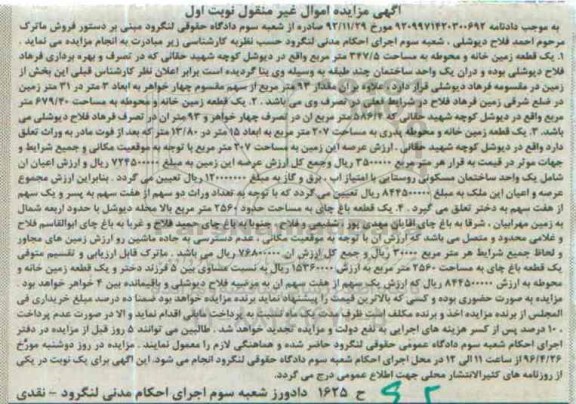 آگهی مزایده اموال غیر منقول نوبت اول
به موجب دادنامه ۹۲۰۹۹۷۱۴۲۰۳۰۰۶۹۲ مورخ ۹۲/۱۱/۲۹ صادره از شعبه سوم دادگاه حقوقی لنگرود مبنی بر دستور فروش ماترک
مرحوم احمد فلاح دیوشلی ، شعبه سوم اجرای احکام مدنی لنگرود حسب نظریه کارشناسی زیر مبادرت به انجام مزایده می نماید .
۱. یک قطعه زمین خانه و محوطه به مساحت ۳۴۷/۵ مترمربع واقع در دیوشل کوچه شهید حقانی که در تصرف و بهره برداری فرهاد
فلاح دیوشلی بوده و در آن یک واحد ساختمان چند طبقه به وسیله وی بنا گردیده است برابر اعلان نظر کارشناس قبلی این بخش از
زمین در مقسومه فرهاد دیوشلی قرار دارد ، علاوه بر آن مقدار ۹۳ متر مربع از سهم مقسوم چهار خواهر به ابعاد ۳ متر در ۳۱ متر زمین
در ضلع شرقی زمین فرهاد فلاح در شرایط فعلی در تصرف وی می باشد . ۲. یک قطعه زمین خانه و محوطه به مساحت ۶۷۹/۲۰ متر
مربع واقع در دیوشل کوچه شهید حقانی که ۵۸۶/۲ متر مربع آن در تصرف چهار خواهر و ۹۳ متر آن در تصرف فرهاد فلاح دیوشلی می
باشد. ۳. یک قطعه زمین خانه و محوطه پدری به مساحت ۲۰۷ متر مربع به ابعاد ۱۵ متر در ۱۳/۸۰ متر که بعد از فوت مادر به وراث تعلق
دارد واقع در دیوشل کوچه شهید حقانی . ارزش عرصه این زمین به مساحت ۲۰۷ متر مربع با توجه به موقعیت مکانی و جمیع شرایط و
جهات موثر در قیمت به قرار هر متر مربع ۳۵۰۰۰۰۰ ریال وجمع کل ارزش عرصه این زمین به مبلغ ۷۲۴۵۰۰۰۰۰ ریال و ارزش اعیان آن
شامل یک واحد ساختمان مسکونی روستایی با امتیاز آب ، برق و گاز به مبلغ ۱۲۰۰۰۰۰۰۰ ریال تعیین می گردد . بنابراین ارزش مجموع
عرصه و اعیان این ملک به مبلغ ۸۴۴۵۰۰۰۰۰ ریال تعیین می گردد که با توجه به تعداد وراث دو سهم از هفت سهم به پسر و یک سهم
از هفت سهم به دختر تعلق می گیرد . ۴. یک قطعه باغ چای به مساحت حدود ۲۵۶۰ متر مربع بالا محله دیوشل با حدود اربعه شمال
به زمین مهرابیان ، شرقا به باغ چای آقایان مهدی پور فلاح ، جنوبا به باغ چای مجید فلاح و غربا به باغ چای ابوالقاسم فلاح
و غلامی محدود و متصل می باشد که ارزش آن با توجه به موقعیت مکانی ، عدم دسترسی به جاده ماشین رو ارزش زمین های مجاور
و لحاظ جمیع شرایط هر متر مربع ۳۰۰۰۰۰ ریال و جمع کل ارزش آن ۷۶۸۰۰۰۰۰۰ ریال می باشد . ماترک قابل ارزیابی و تقسیم متوفی
یک قطعه باغ چای به مساحت ۲۵۶۰ متر مربع به ارزش ۱۵۳۶۰۰۰۰۰ ریال به نسبت مساوی بین ۵ فرزند دختر و یک قطعه زمین خانه و
محوطه به ارزش ۸۴۴۵۰۰۰۰۰ ریال که ارزش یک سهم از هفت سهم آن به مرضیه فلاح دیوشلی و باقیمانده بین ۴ خواهر خواهد بود .
مزایده به صورت حضوری بوده و کسی که بالاترین قیمت را پیشنهاد نماید برنده مزایده خواهد بود ضمنا ده درصد مبلغ خریداری فی
المجلس از برنده مزایده اخذ و برنده مکلف است ظرف مدت پرداخت مابقی اقدام نماید و الا در صورت عدم پرداخت
۱۰ درصد پس از کسر هزینه های اجرایی به نفع دولت و مزایده تجدید خواهد شد . طالبین می توانند ۵ روز قبل از مزایده در دفتر
اجرای احکام شعبه سوم دادگاه عمومی حقوقی لنگرود حاضر شده و هماهنگی لازم را معمول نمایند . مزایده در روز دوشنبه مورخ
۹۶/۴/۲۶ از ساعت ۱۱ الی ۱۲ در محل اجرای احکام شعبه سوم دادگاه حقوقی لنگرود انجام می شود. این آگهی برای یک نوبت در یکی
از روزنامه های کثیرالانتشار محلی جهت اطلاع عمومی درج می گردد.
ح ۱۶۲۵ دادورز شعبه سوم اجرای احکام مدنی لنگرود - نقدی